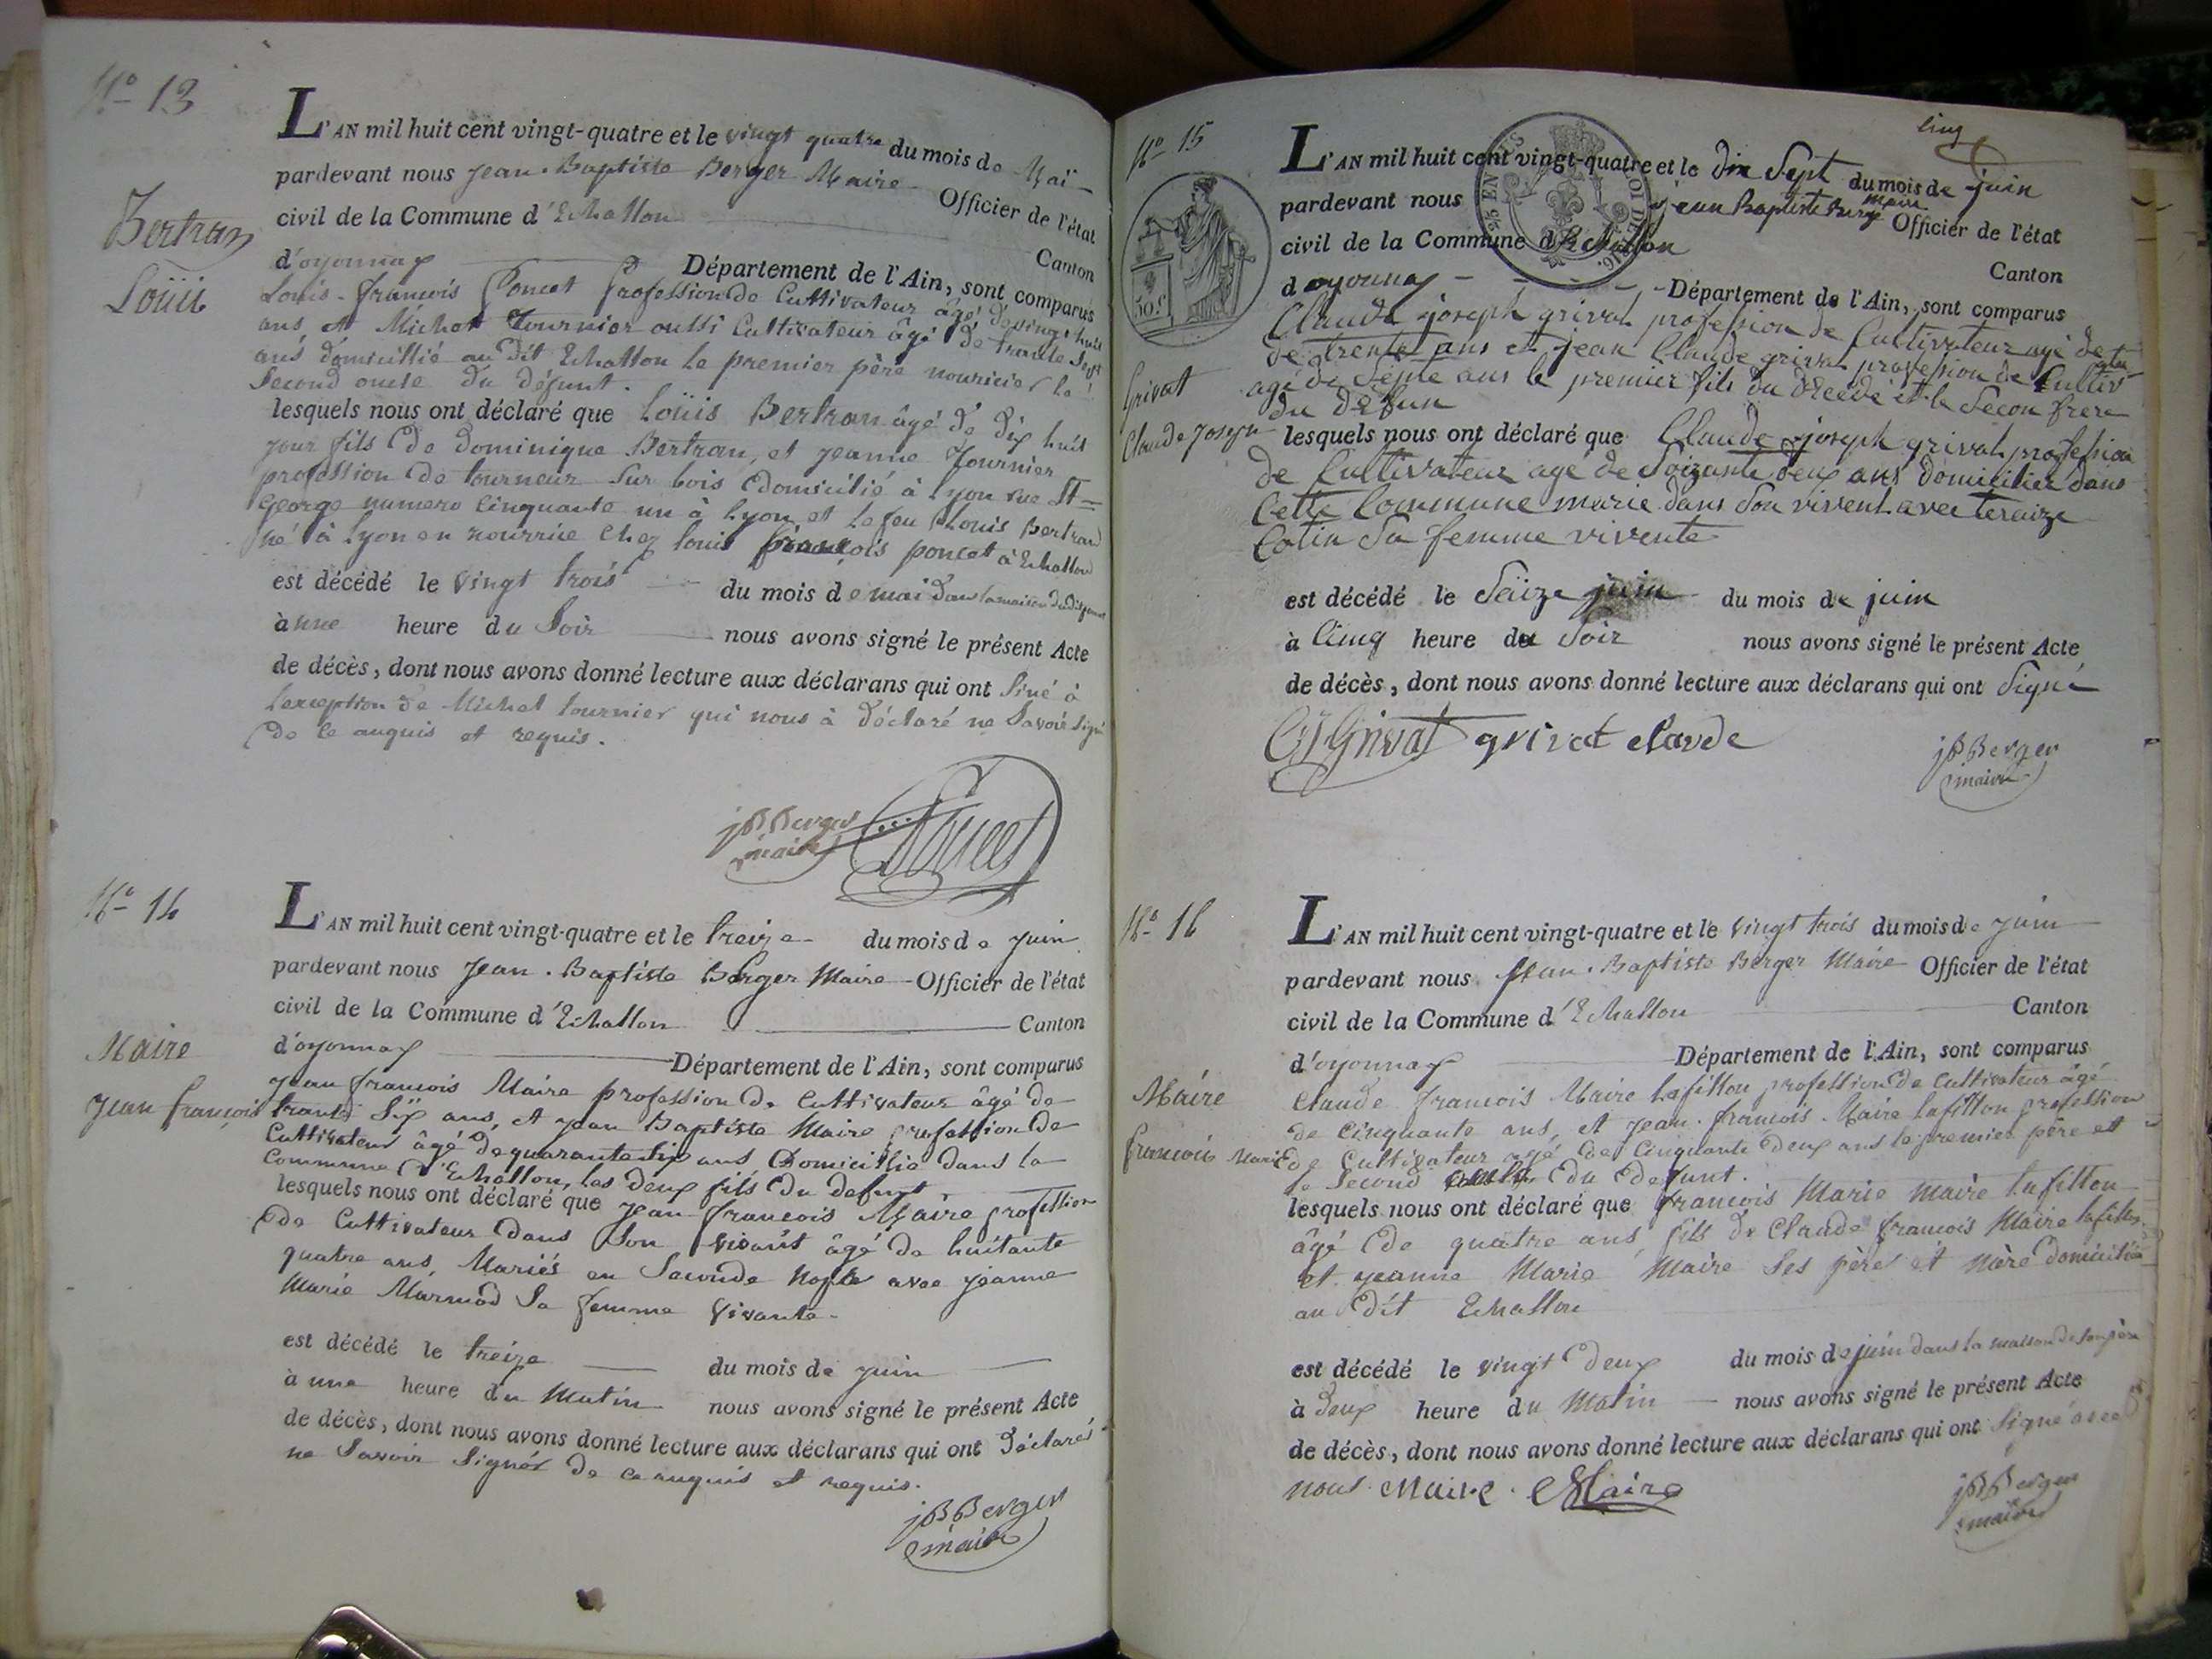 Nº 13
Bertran
Loüis
L'AN mil huit cent vingt-quatre et le vingt quatre du mois de Maï
pardevant nous Jean-Baptiste Berger Maire Officier de l'état
civil de la Commune d'Echallon Canton
d'oyonnax Département de l'Ain, sont comparus
Louis-françois Poncet profession de Cultivateur âgé de vingt huit
ans, et Michel Tournier oussi Cultivateur âgé de trante Sept
ans domicillié au dit Echallon le premier père nouricier le
Second oncle du défunt.
lesquels nous ont déclaré que Loüis Bertran âgé de dix huit
jour fils de dominique Bertran, et jeanne Tournier
profession de tourneur Sur bois domicilié à Lyon rue St=
George numero Cinquante un à Lyon et le feu Louis Bertrand
né à Lyon en nourrice Chez louis françois poncet à Echallon
est décédé le vingt trois du mois de mai dans la maison dudit poncet
à une heure du Soir nous avons signé le présent Acte
de décès, dont nous avons donné lecture aux déclarans qui ont Siné à
l'exception de Michel tournier qui nous à déclaré ne Savoir Signé
de ce anquis et requis.
jBBerger
maire
Poncet
Nº 14
Maire
Jean françois
L'AN mil huit cent vingt-quatre et le treize du mois de juin
pardevant nous Jean-Baptiste Berger Maire Officier de l'état
civil de la Commune d'Echallon Canton
d'oyonnax Département de l'Ain, sont comparus
jean françois Maire profession de Cultivateur âgé de
trante Six ans, et jean Baptiste Maire profession de
Cultivateur âgé de quarante Six ans Domicillié dans la
Commune d'Echallon, les deux fils du defunt
lesquels nous ont déclaré que jean françois Maire profession
de Cultivateur dans Son vivant âgé de huitante
quatre ans, Mariés en Seconde Nopte avec jeanne
Marie Marmod Sa femme vivante.
est décédé le treize du mois de juin
à une heure du Matin nous avons signé le présent Acte
de décès, dont nous avons donné lecture aux déclarans qui ont Déclarés
ne Savoir Signér de ce anquis et requis.
jBBerger
maire
cinq
Nº 15
Grivat
Claude Joseph
L'AN mil huit cent vingt-quatre et le dix Sept du mois de juin
pardevant nous jean Baptiste Berge Maire Officier de l'état
civil de la Commune d'Echallon Canton
d'oyonnax Département de l'Ain, sont comparus
Claude joseph grivat profession de Cultivateur agé de
de trente ans et jean Claude grivat profession de Cultiv
agé de Septe ans le premier fils du décédé et le Secon frere
du defun
lesquels nous ont déclaré que Claude joseph grivat profession
de Cultivateur age de Soizante deux ans domicilier dans
Cette Commune marie dans Son vivent avec teraize
Cotin Sa femme vivente
est décédé le Saize juin du mois de juin
à Cinq heure du Soir nous avons signé le présent Acte
de décès, dont nous avons donné lecture aux déclarans qui ont Signé
CJ Grivat grivat claude
jBBerger
maire
Nº 16
Maire
françois Marie
L'AN mil huit cent vingt-quatre et le vingt trois du mois de juin
pardevant nous Jean-Baptiste Berger Maire Officier de l'état
civil de la Commune d'Echallon Canton
d'oyonnax Département de l'Ain, sont comparus
Claude françois Maire lafitton profession de Cultivateur âgé
de Cinquante ans, et Jean-françois-Maire lafitton profession
de Cultivateur agé de Cinquante deux ans le premier père et
le Second du defunt.
lesquels nous ont déclaré que françois Marie maire lafitton
âgé de quatre ans fils de Claude françois Maire lafitton
et jeanne Marie Maire Ses père et Mère domicilié
au dit Echallon
est décédé le vingt deux du mois de juin dans la maison de Son père
à deux heure du Matin nous avons signé le présent Acte
de décès, dont nous avons donné lecture aux déclarans qui ont Signé avec
nous Maire. Maire
jBBerger
maire